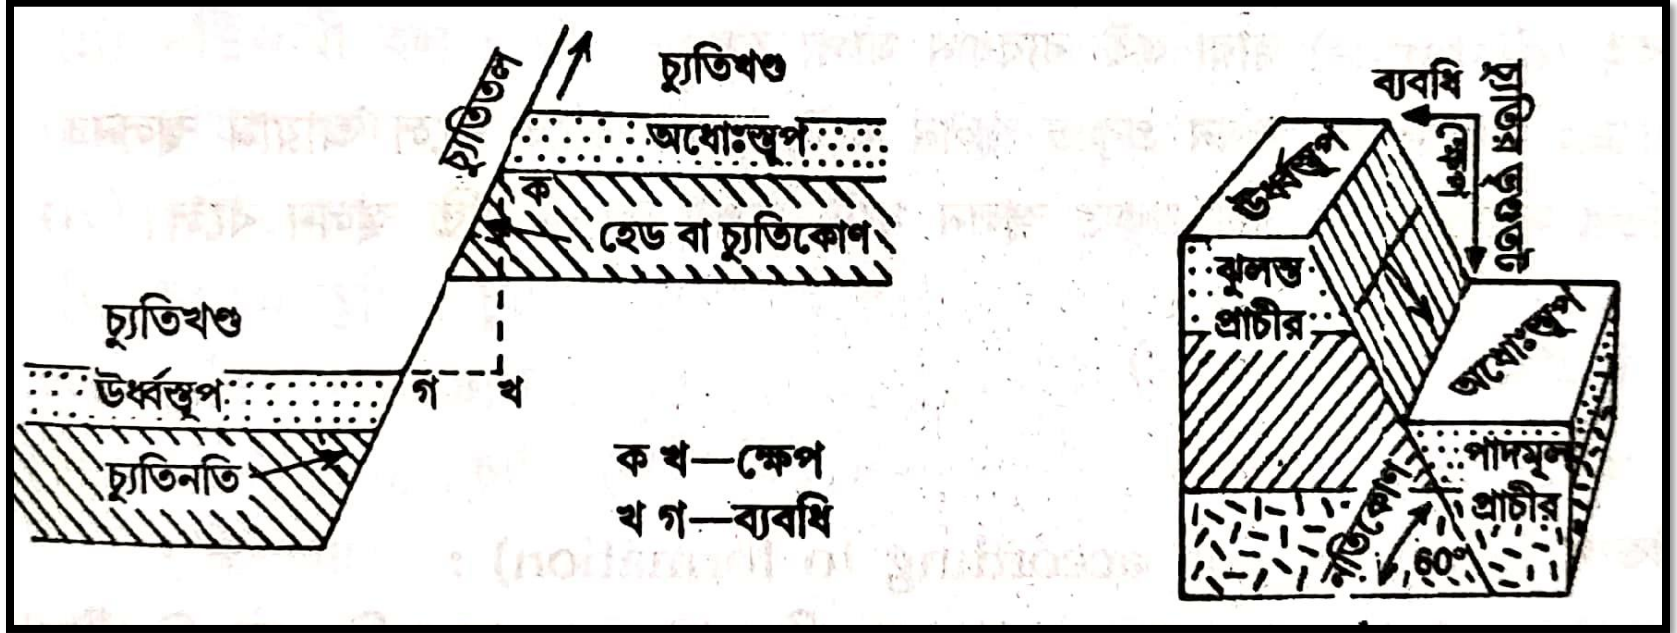 চ্যুতিতল
চ্যুতিখণ্ড
অধোঃস্তূপ
ক
হেড বা চ্যুতিকোণ
চ্যুতিখণ্ড
ঊর্ধ্বস্তূপ
গ
খ
চ্যুতিনতি
ক খ—ক্ষেপ
খ গ—ব্যবধি
ব্যবধি
ক্ষেপ
চ্যুতির ভৃগুতট
ঊর্ধ্বস্তূপ
ঝুলন্ত
প্রাচীর
অধোঃস্তূপ
পাদমূল
প্রাচীর
নতিকোণ
60°
according to formation) :